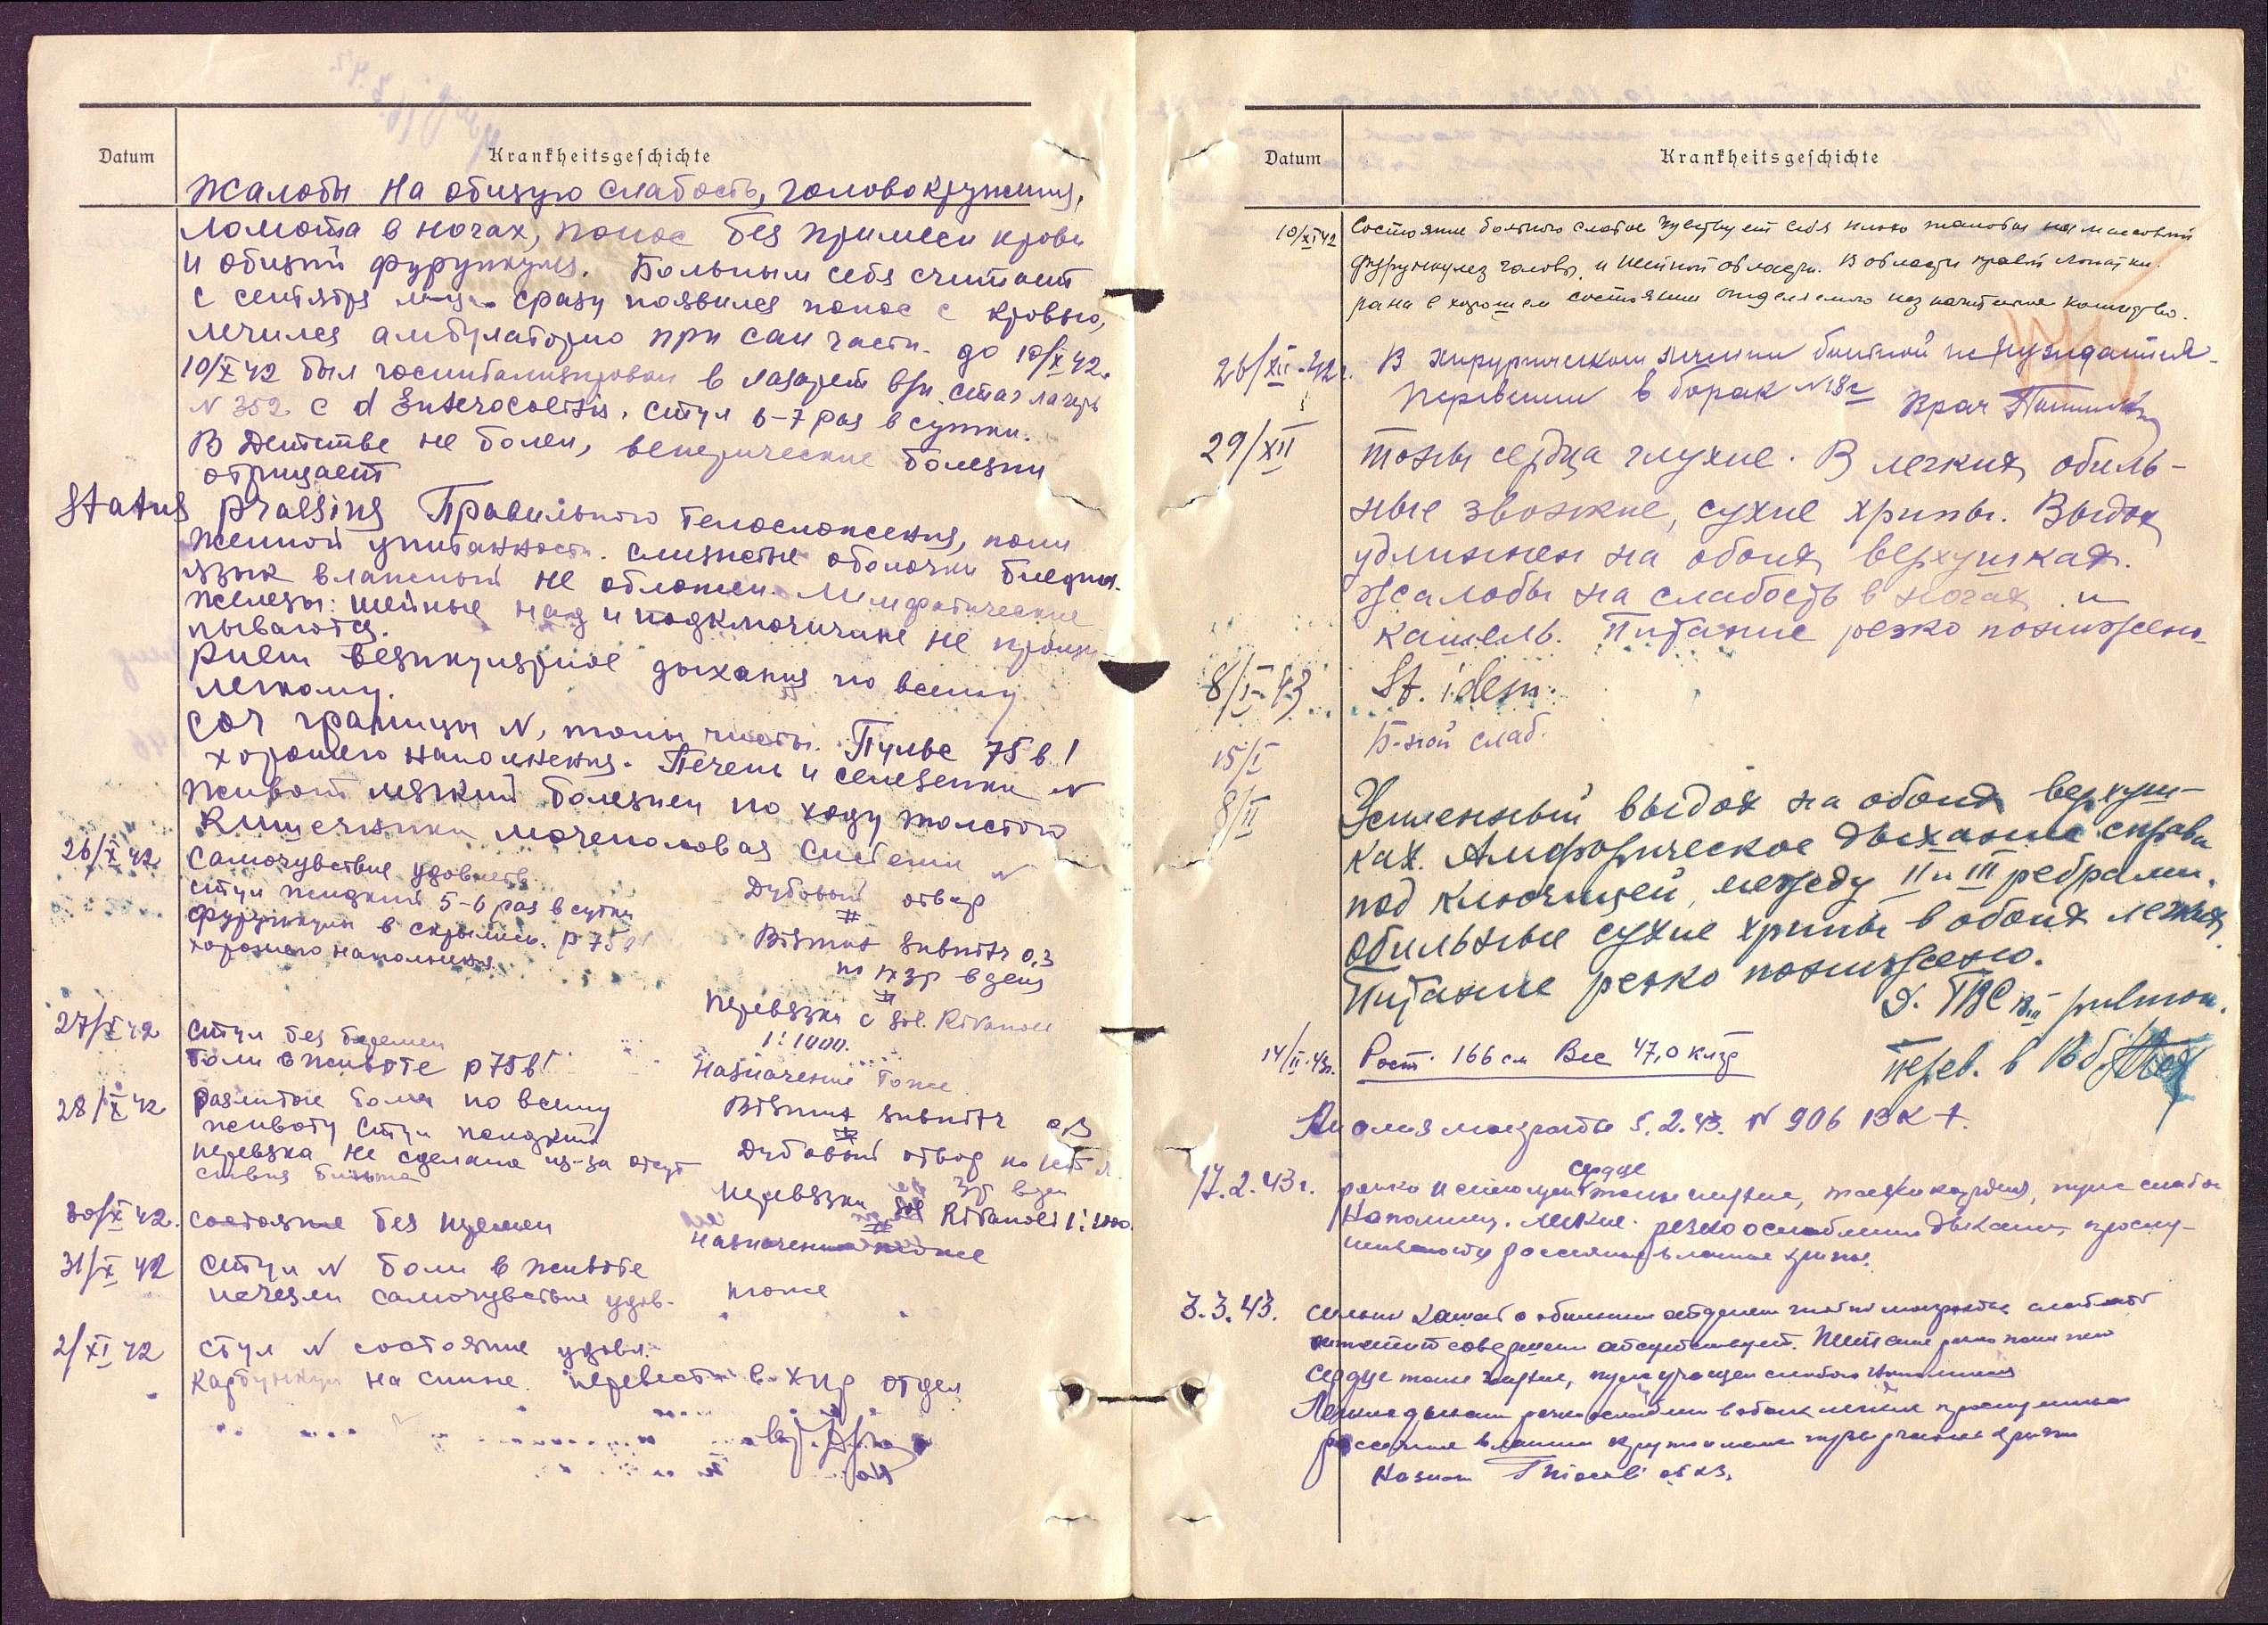 Datum
Krankheitsgeschichte
Жалобы на общую слабость, головокружения,
ломота в ногах, понос без примеси крови
и общий фурункулез. Больным себя считает
с сентября м-ца сразу появился понос с кровью,
лечился амбулаторно при сан части до 10/X 42.
10/X 42 был госпитализирован в лазарет
N 352 с d Enterocolitis. Стул 6-7 раз в сутки.
В детстве не болел, венерические болезни
отрицает
Status praesins Правильного телосложения, пони
женной упитанности. Слизистые оболочки бледны.
язык влажный не обложен. Лимфатические
железы: шейные над и подключичные не прощу
пываются.
Pulm везикулярное дыхания по всему
легкому.
Cor границы N, тоны чисты. Пульс 75 в 1
хорошего наполнения. Печень и селезенка N
Живот мягкий болезнен по ходу толстого
Кишечника мочеполовая система N
26/X 42 Самочувствие удовлетв.
Стул жидкий 5-6 раз в сутки
фурункулы вскрылись. p 75 в 1
хорошего наполнения.
Дубовый отвар
#
Bismut subnitr 0,3
по 1x3р в день
#
Перевязка с Sol. Rivanoli
1:1000.
27/X 42 Стул без
боли в животе p 75 в 1
Назначение тоже
28/X 42 разлитые боли по всему
животу Стул жидкий
перевязка не сделана из-за отсут
ствия бинта
Bismut subnitr 0,3
#
Дубовый отвар по
3р в день
Перевязки Sol Rivanoli 1:1000.
30/X 42. состояние без измен
назначение тоже
31/X 42 Стул N боли в животе
исчезли самочувствие удов.
тоже
2/XI 42 Стул N состояние удовл.
Карбункул на спине. перевести в хир отдел
Datum
Krankheitsgeschichte
10/XI 42 Состояние больного слабое чувствует себя плохо жалобы на массовый
фурункулез головы и шейной области. В области правой лопатки
рана в хорошем состоянии отделяемого незначительное количество.
26/XII 42г. В хирургическом лечении больной не нуждается
Переведен в барак N 18с Врач
29/XII тоны сердца глухие. В легких обиль-
ные звонкие, сухие хрипы. Выдох
удлинен на обоих верхушках.
Жалобы на слабость в ногах и
кашель. Питание резко понижено
8/I-43 St. idem.
15/I Б-ной слаб.
8/II Усиленный выдох на обоих верхуш-
ках. Амфорическое дыхание справа
под ключицей, между II и III ребрами.
Обильные сухие хрипы в обоих легких.
Питание резко понижено.
D. TBC III pulmon.
перев. в
14/II 43г. Рост 166 см Вес 47,0 клгр
Анализ мокроты 5.2.43. N 906 BK +.
17.2.43г. резко истощен сердце тоны глухие, тахикардия, пульс слабого
наполнен. легкие: резко ослаблен дыхание, прослу-
шиваются рассеяные влажные хрипы.
3.3.43. сильн кашель с обильным отделен мокроты слабость
аппетит совершен отсутствует. Питание резко пониж
Сердце тоны глухие, пульс учащен слабого наполнения
Легкие дыхан резко ослаблен в обоих легких прослушив
рассеяные влажные
Назнач